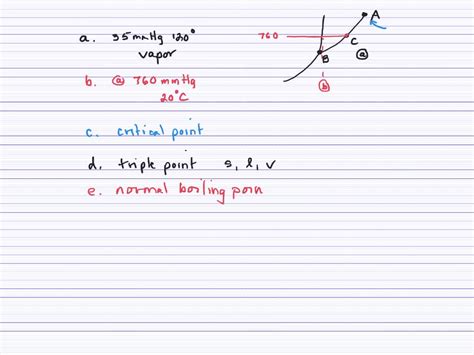 a. 35 mmHg 120°
vapor
b. @ 760 mmHg
20°C
c. critical point
d. triple point s, l, v
e. normal boiling poin
760
A
C
B
a
b